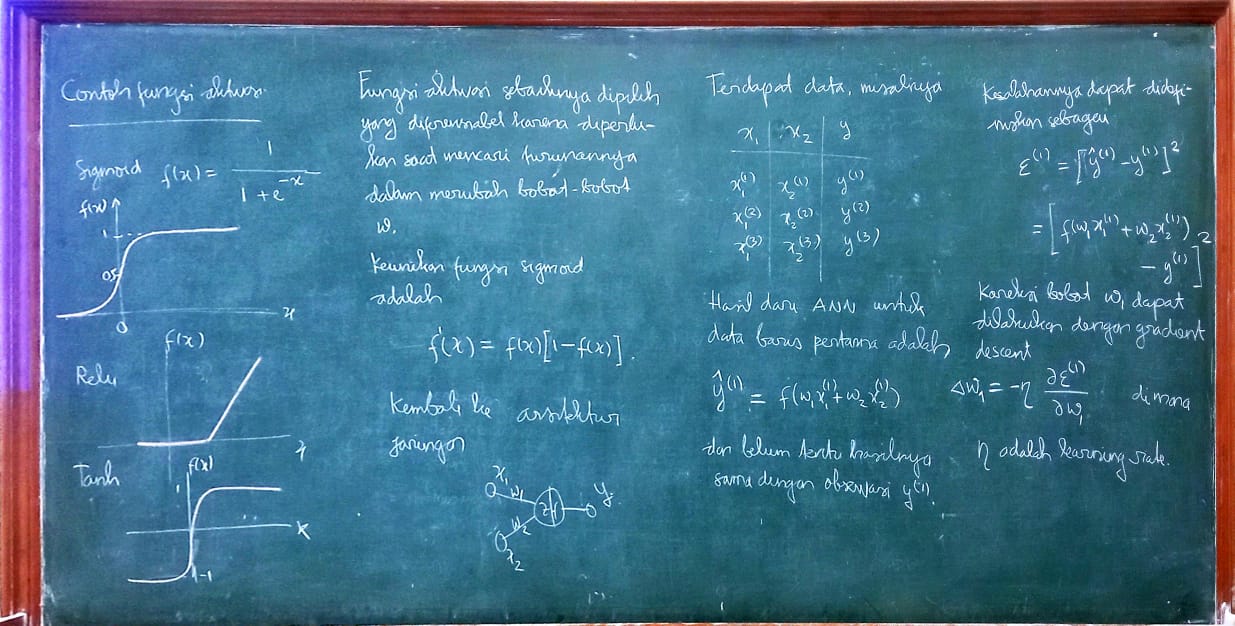 Contoh fungsi aktivasi
Sigmoid f(x) = 1 / 1 + e^-x
f(x)
1
0.5
0
x
f(x)
Relu
x
Tanh
f(x)
1
x
-1
Fungsi aktivasi sebaiknya dipilih
yang diferensiabel karena diperlu-
kan saat mencari turunannya
dalam merubah bobot-bobot
w.
Keunikan fungsi sigmoid
adalah
f'(x) = f(x)[1-f(x)].
Kembali ke arsitektur
jaringan
x₁
w₁
Σ|f
y
w₂
x₂
Terdapat data, misalnya
x₁ x₂ y
x₁^(1) x₂^(1) y^(1)
x₁^(2) x₂^(2) y^(2)
x₁^(3) x₂^(3) y^(3)
Hasil dari ANN untuk
data baris pertama adalah
ŷ^(1) = f(w₁x₁^(1) + w₂x₂^(1))
dan belum tentu hasilnya
sama dengan observasi y^(1).
Kesalahannya dapat didefi-
nisikan sebagai
ε^(1) = [ŷ^(1) - y^(1)]²
= [f(w₁x₁^(1) + w₂x₂^(1))
- y^(1)]²
Koreksi bobot w₁ dapat
dilakukan dengan gradient
descent
Δw₁ = -η ∂ε^(1) / ∂w₁ di mana
η adalah learning rate.